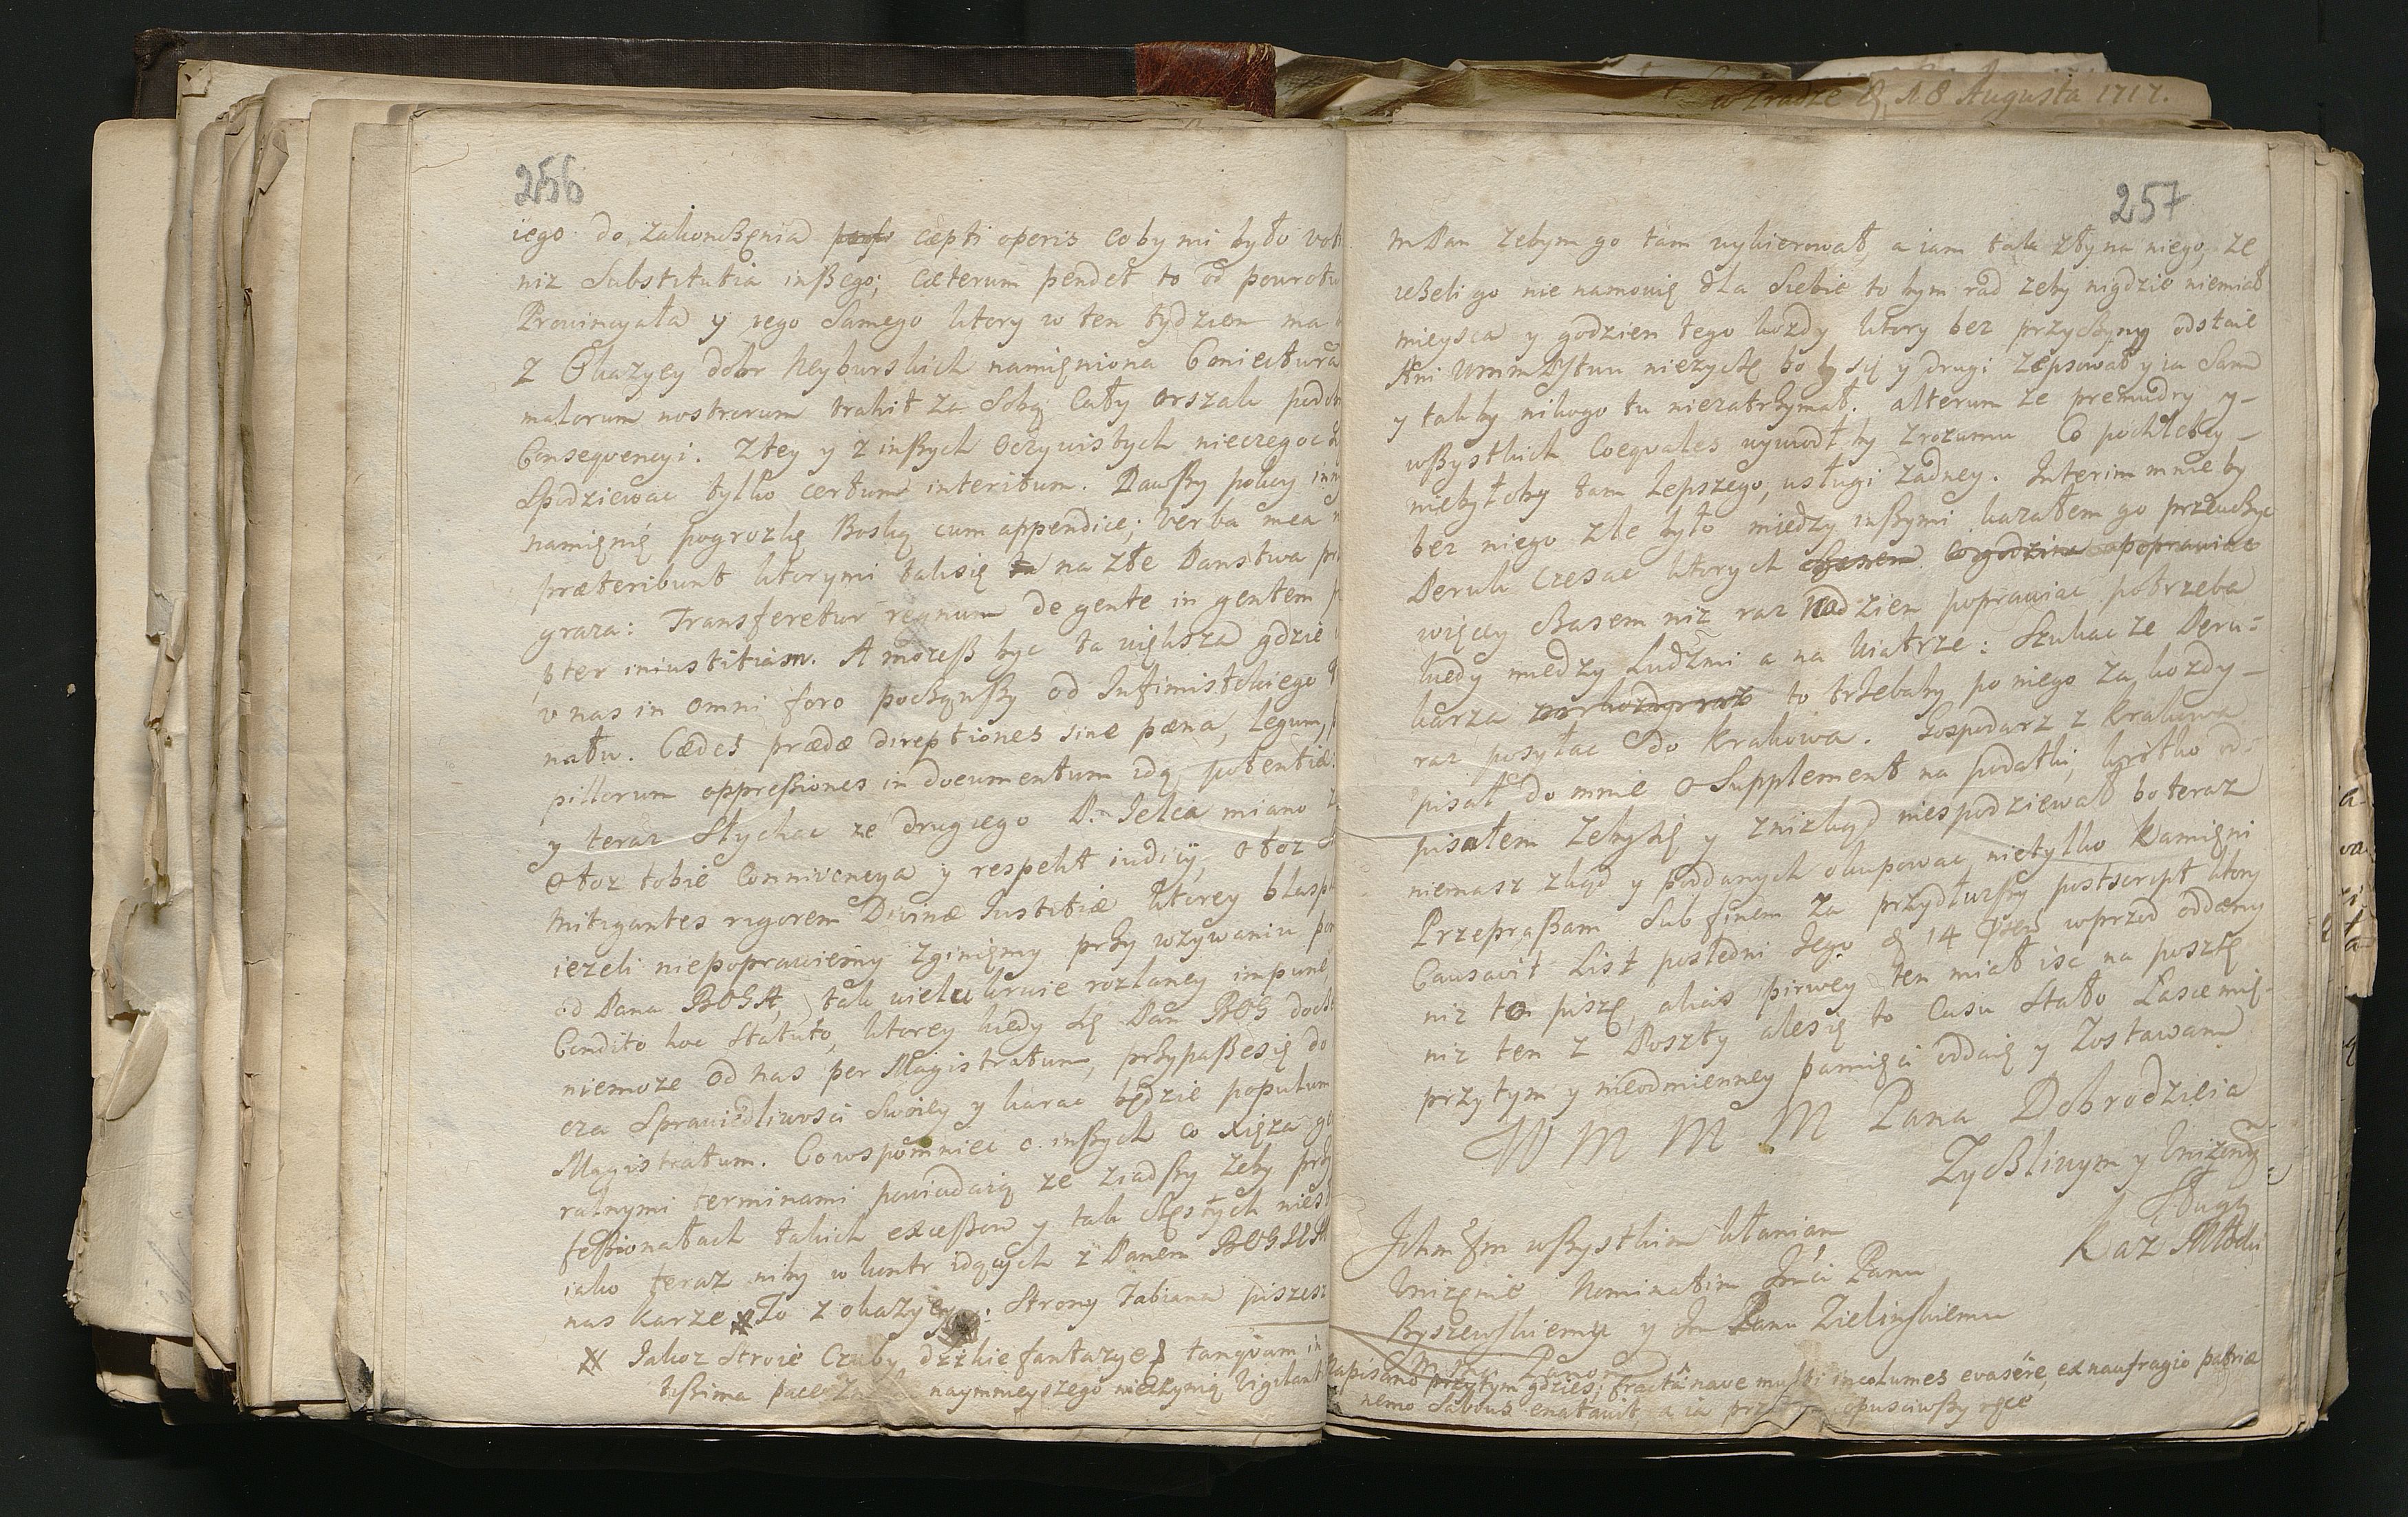 w Pradze d. 18 Augusta 1717.
256
iego do zakonczęnia cæpti operis coby mi było
niz Substitutia inßego; cæterum pendet to od powrotu
Prowincyała y iego Samego ktory w ten tydzien ma
Z Okazyey dobr Keyburskich namięniona Coniectura
malorum nostrorum trahit za Sobą Cały orszak
Conseqvencyi. Z tey y z inßych oczywistych nieczegoc
Spdziewac tylko certum interitum. Dawßy pokoy
namięnię pogrozkę Boską cum appendice; Verba mea
præteribunt ktorymi tak się na złe Panstwa
graza: Transferetur regnum de gente in gentem
pter iniustitiam. A możeß byc ta większa gdzie
v nas in omni foro począwßy od Infimistskiego
natu. Cædes prædæ direptiones sine pæna, Legum,
pillorum oppreßiones in documentum idq; potentiæ.
y teraz Słychac ze drugiego P. Jelca miano
Otoz tobie Conniuencya y respekt iudicÿ, otoz
mitigantes rigorem Divinæ Iustitiæ ktorey
iezeli niepoprawiemy zginięmy przy wzywaniu
od Pana BOGA, tak wielu krwie rozlaney impune,
Condito hoc Statuto, ktorey kiedy Sę Pan BOG
niemoze od nas per Magistratum, przypaße się do
cza Sprawiedliwosci Swoiey y karac będzie populum
Magistratum. Co wspomniec o inßych co xięza
ralnymi terminami powiadaią ze ziadßy zęby
feßionałach takich exceßow y tak częstych
iako teraz niby w kontr idących z Panem BOGIEM
nas karze # To z okazyey: Strony Fabiana piszesz
# Jakoz Stroie Czuby dzikie fantazye tanqvam in
tißima pace naymnieyszego nieczynią
257
m Pan zebym go tam wykierował, a iam tak zły na niego, ze
ieżeli go nie namowię dla Siebie to bym rad zeby nigdzie niemiał
mieysca y godzien tego kozdy ktory bez przyczyny odstaie
Ani Wmm życzę bo by się y drugi zepsował y ia Sam
y takby nikogo tu niezatrzymał. alterum ze premudry y
wßystkich Coeqvales wywodł by z rozumu Co pochlebcy
niebyłoby tam Lepszego, usługi zadney. Interim mnie by
bez niego zle było miedzy inßymi kazałem go przeuczyc
Peruk czesac ktorych czasem co godzina poprawiac
więcy czasem niz raz Na dzien poprawiac potrzeba
kiedy miedzy Ludzmi a na wiatrze: Szukac ze Peru=
karza to trzebaby po niego za kozdy
raz posyłac do Krakowa. Gospodarz z Krakowa
pisał do mnie o Supplement na podatki, krotko od=
pisałem zeby Sę y znikąd niespodziewał bo teraz
niemasz zkąd y poddanych okupowac nietylko Kamięni
Przepraßam Sub finem za przydłużßy postscript ktory
Causavit List posledni Jego d 14 wprzod oddany
niz to piszę, alias pirwey ten miał isc na posztę
niz ten z Poszty ale się to Casu Stało Lasce mię
przytym y nieodmienney pamięci oddaię y Zostawam
W M M M Pana Dobrodzieia
Zyczliwym y Vnizonÿ
Sługą
Kaz
wßystkim kłaniam
Vnizęnie Nominatim Jmći Panu
Ryszewskiemu y Jm Panu Zielinskiemu
napisano przytym gdzies; fracta nave multi incolumes evasere, ex naufragio patriæ
nemo Salvus enatavit, a ia opusciwßy ręce